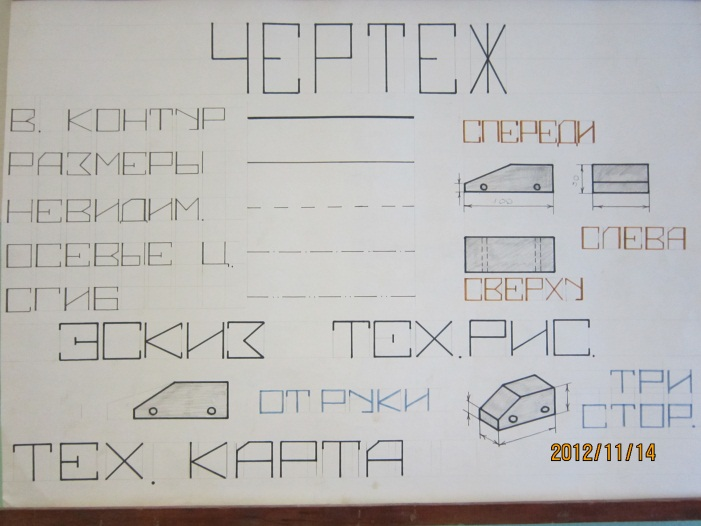 ЧЕРТЕЖ
В. КОНТУР
РАЗМЕРЫ
НЕВИДИМ.
ОСЕВЫЕ Ц.
СГИБ
СПЕРЕДИ
100
СЛЕВА
СВЕРХУ
ЭСКИЗ ТЕХ.РИС.
ОТ РУКИ
ТРИ
СТОР.
ТЕХ. КАРТА
2012/11/14